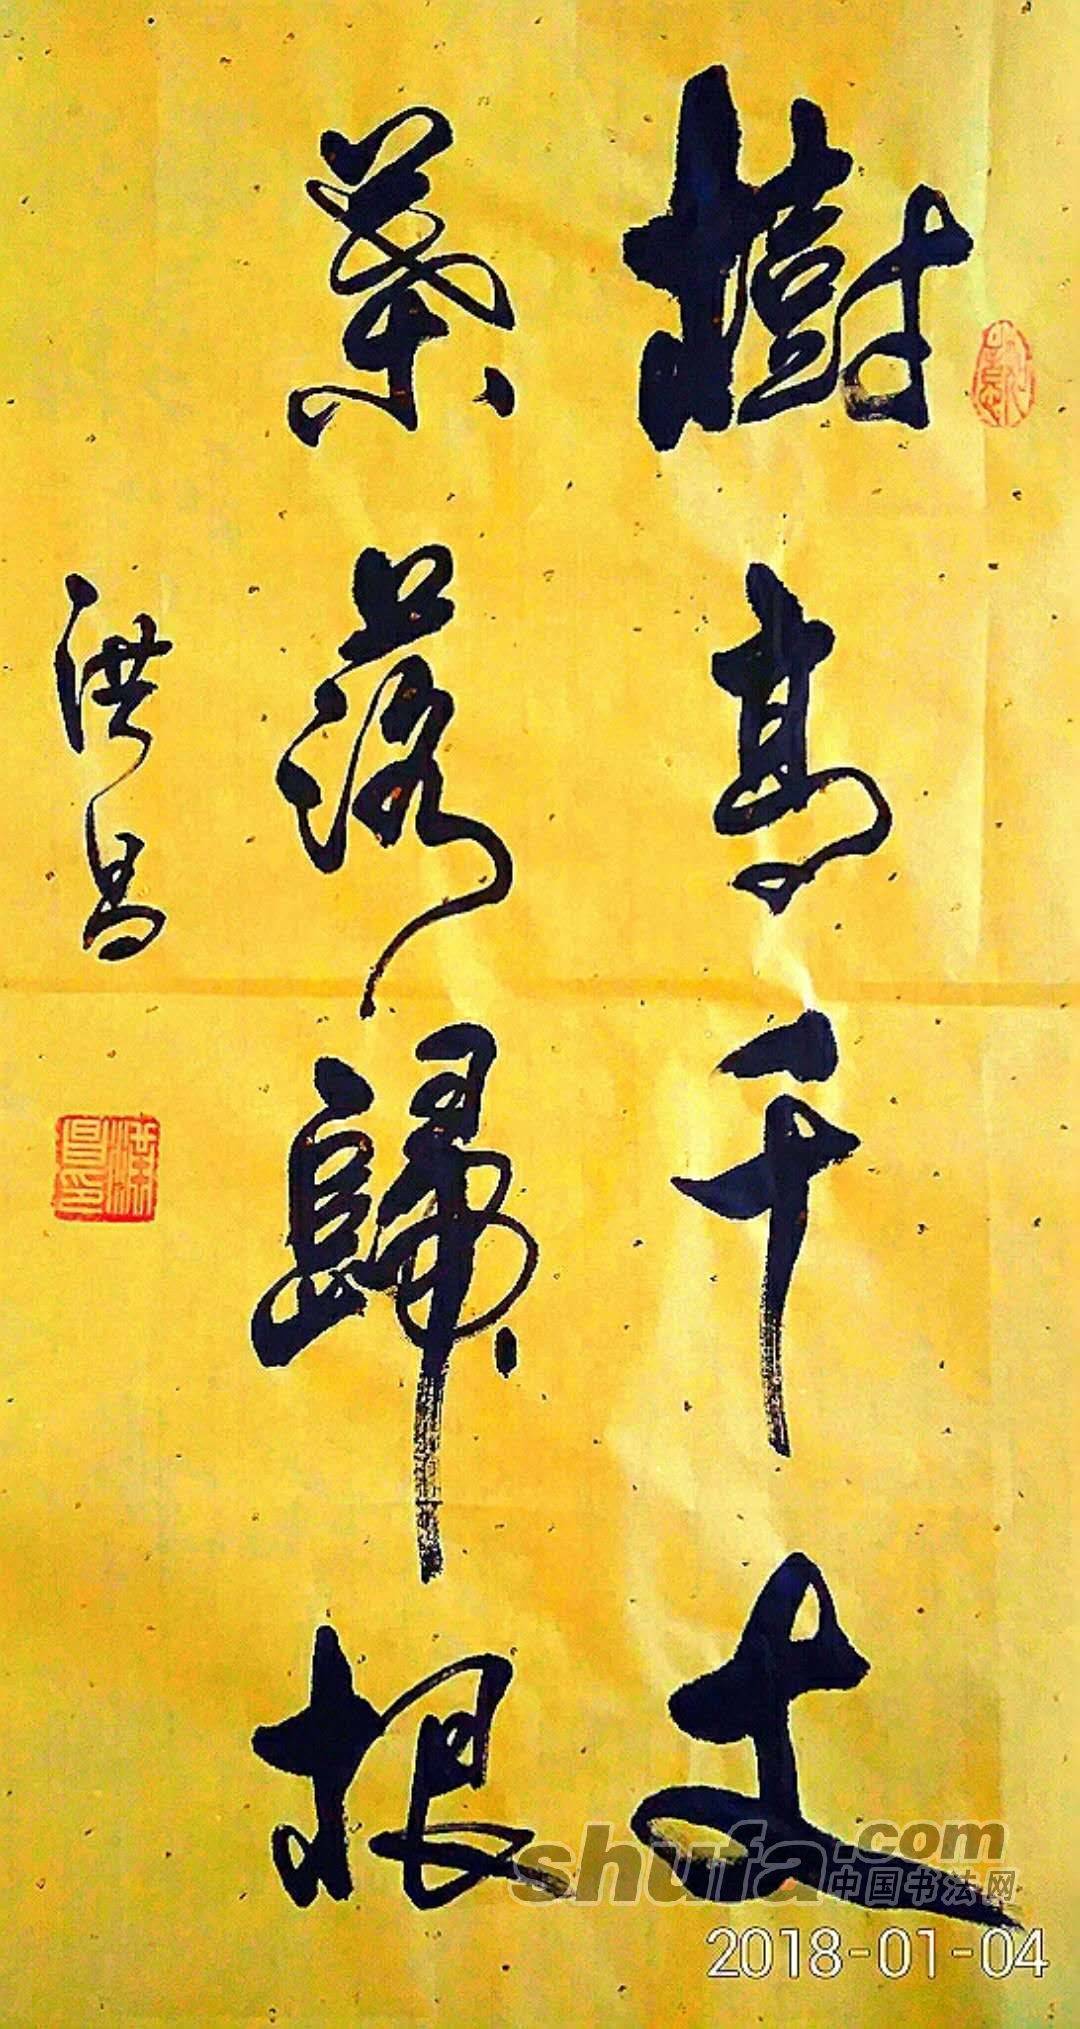 樹高千丈
葉落歸根
洪昌
shufa.com
中国书法网
2018-01-04